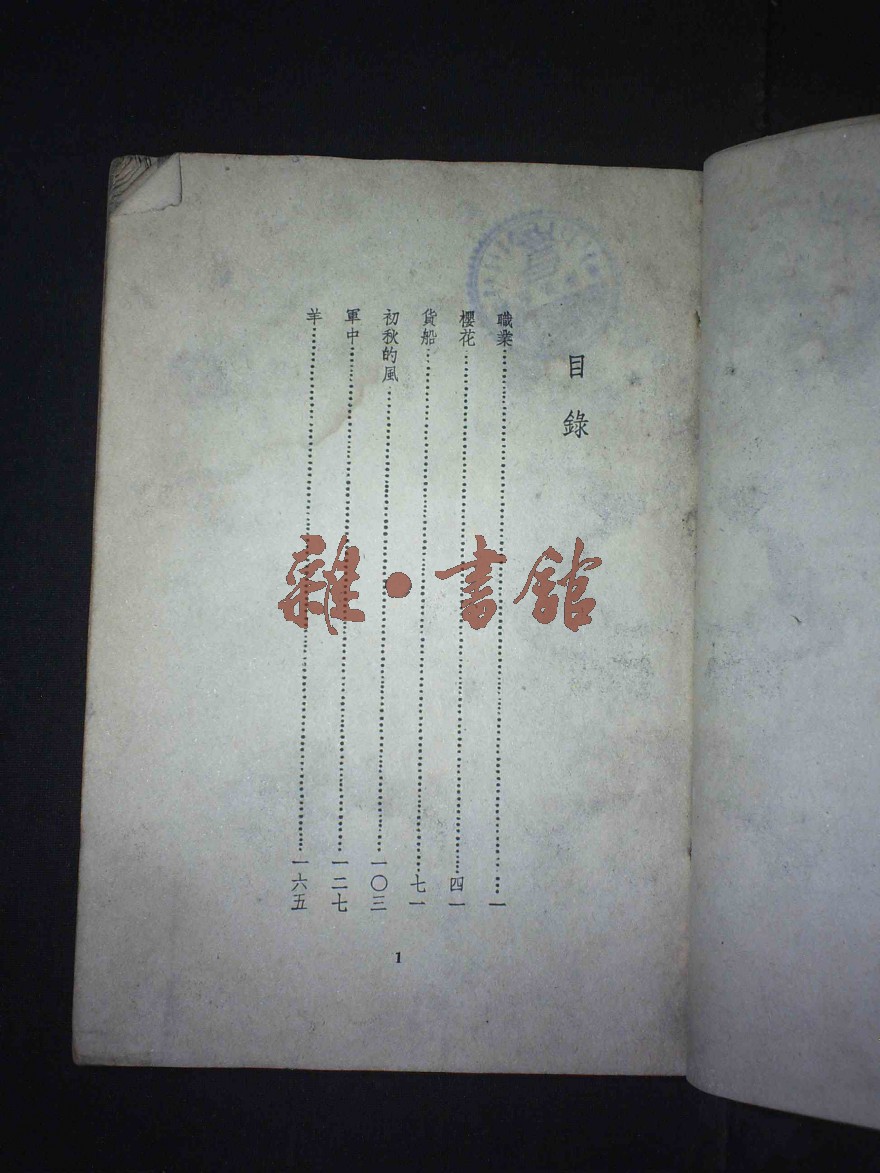 目錄
職業……一
櫻花……四一
貨船……七一
初秋的風……一〇三
軍中……一二七
羊……一六五
1
雜·書館